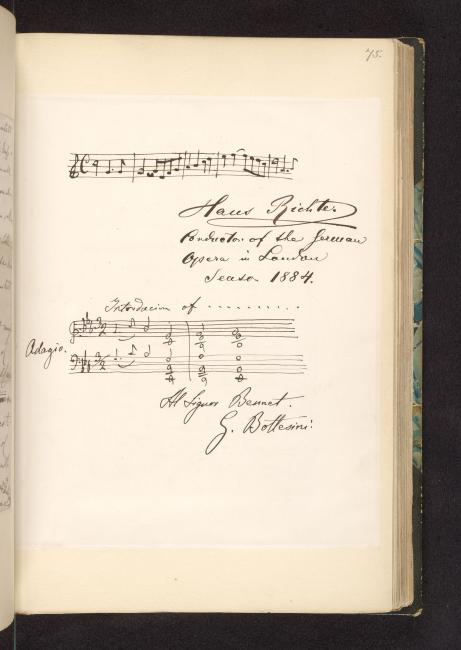 75.
Hans Richter
Conductor of the German
Opera in London
Season 1884.
of ..........
Adagio.
Al Signor Bennet.
G. Bottesini